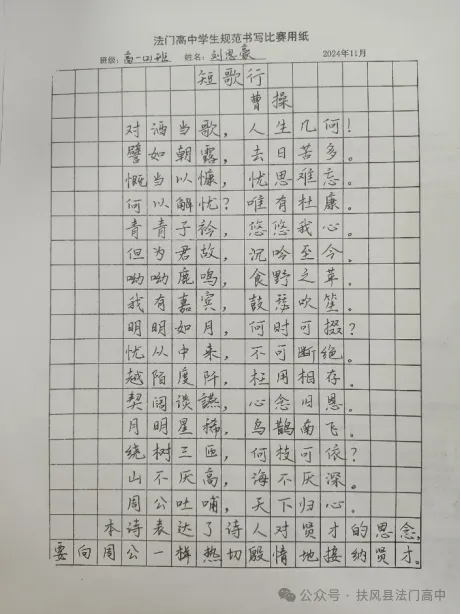 法门高中学生规范书写比赛用纸
班级：高一(4)班 姓名：刘思豪 2024年11月
短歌行
曹操
对酒当歌，人生几何！
譬如朝露，去日苦多。
慨当以慷，忧思难忘。
何以解忧？唯有杜康。
青青子衿，悠悠我心。
但为君故，沉吟至今。
呦呦鹿鸣，食野之苹。
我有嘉宾，鼓瑟吹笙。
明明如月，何时可掇？
忧从中来，不可断绝。
越陌度阡，枉用相存。
契阔谈讌，心念旧恩。
月明星稀，乌鹊南飞。
绕树三匝，何枝可依？
山不厌高，海不厌深。
周公吐哺，天下归心。
本诗表达了诗人对贤才的思念，
要向周公一样热切殷情地接纳贤才。
公众号·扶风县法门高中